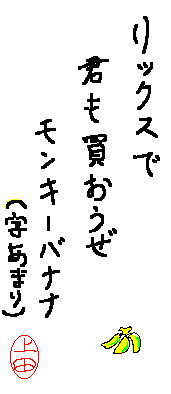 リックスで
君も買おうぜ
モンキーバナナ
(字あまり)
上田